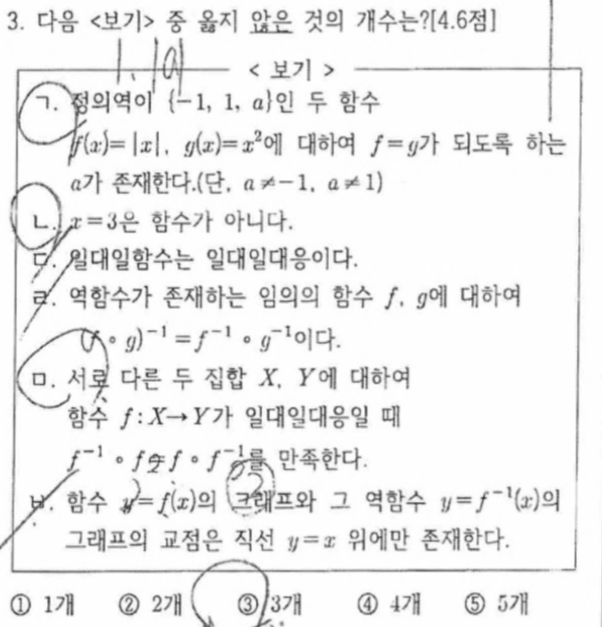 3. 다음 <보기> 중 옳지 않은 것의 개수는?[4.6점]
< 보기 >
ㄱ. 정의역이 {-1, 1, a}인 두 함수
f(x)=|x|, g(x)=x²에 대하여 f=g가 되도록 하는
a가 존재한다.(단, a≠-1, a≠1)
ㄴ. x=3은 함수가 아니다.
ㄷ. 일대일함수는 일대일대응이다.
ㄹ. 역함수가 존재하는 임의의 함수 f, g에 대하여
(f∘g)⁻¹=f⁻¹∘g⁻¹이다.
ㅁ. 서로 다른 두 집합 X, Y에 대하여
함수 f:X→Y가 일대일대응일 때
f⁻¹∘f f∘f⁻¹를 만족한다.
ㅂ. 함수 y=f(x)의 그래프와 그 역함수 y=f⁻¹(x)의
그래프의 교점은 직선 y=x 위에만 존재한다.
① 1개 ② 2개 ③ 3개 ④ 4개 ⑤ 5개